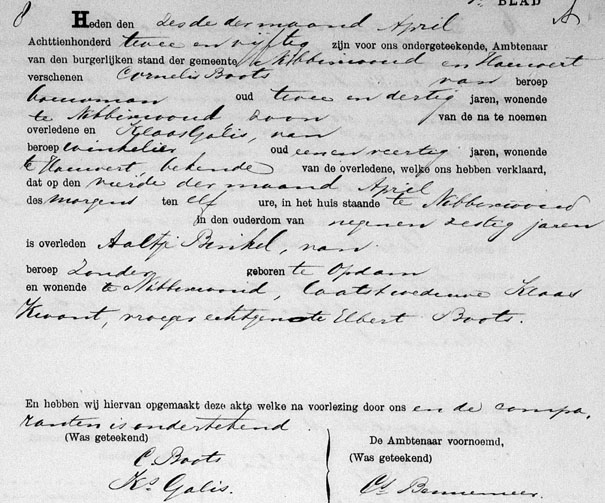 8 BLAD A
Heden den zesde der maand April
Achttienhonderd twee en vijftig zijn voor ons ondergeteekende, Ambtenaar
van den burgerlijken stand der gemeente Nibbixwoud en Hauwert
verschenen Cornelis Boots van beroep
bouwman oud twee en dertig jaren, wonende
te Nibbixwoud zoon van de na te noemen
overledene en Klaas Galis, van
beroep winkelier, oud een en veertig jaren, wonende
te Hauwert, bekende van de overledene, welke ons hebben verklaard,
dat op den vierde der maand April
des morgens ten elf ure, in het huis staande te Nibbixwoud
in den ouderdom van negen en zestig jaren
is overleden Aaltje Benikel, van
beroep zonder geboren te Opdam
en wonende te Nibbixwoud, laatst weduwe Klaas
Kwant, vroeger echtgenote Elbert Boots.
En hebben wij hiervan opgemaakt deze akte welke na voorlezing door ons en de compa,
ranten is ondertekend
(Was geteekend) De Ambtenaar voornoemd,
C. Boots (Was geteekend)
Ks Galis.